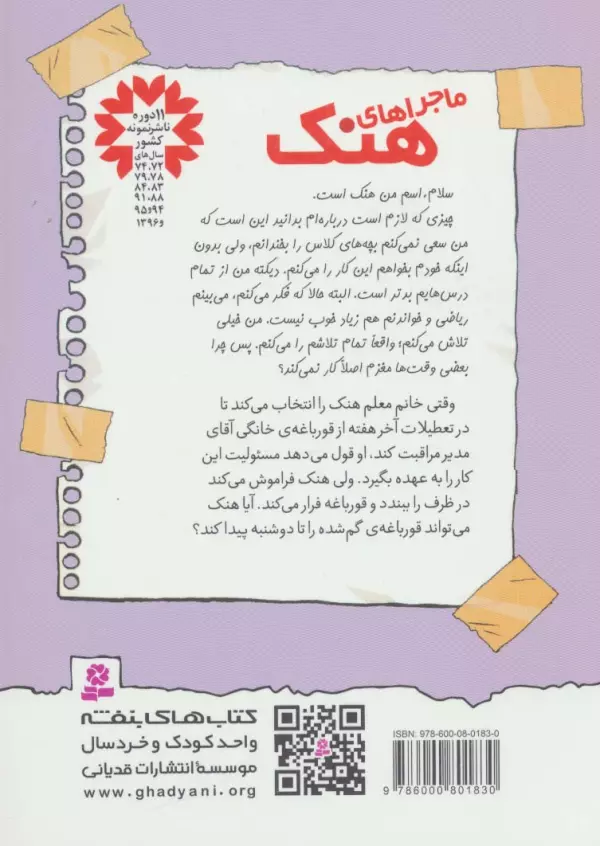 ماجراهای
هنک
۱۱ دوره
ناشر نمونه
کشور
سال‌های
۷۴،۷۲
۷۹،۷۸
۸۴،۸۳
۹۱،۸۸
۹۴و۹۵
و۱۳۹۶
سلام، اسم من هنک است.
چیزی که لازم است درباره‌ام بدانید این است که
من سعی نمی‌کنم بچه‌های کلاس را بخندانم، ولی بدون
اینکه خودم بخواهم این کار را می‌کنم. دیکته من از تمام
درس‌هایم بدتر است. البته حالا که فکر می‌کنم، می‌بینم
ریاضی و خواندنم هم زیاد خوب نیست. من خیلی
تلاش می‌کنم؛ واقعاً تمام تلاشم را می‌کنم. پس چرا
بعضی وقت‌ها مغزم اصلاً کار نمی‌کند؟
وقتی خانم معلم هنک را انتخاب می‌کند تا
در تعطیلات آخر هفته از قورباغه‌ی خانگی آقای
مدیر مراقبت کند، او قول می‌دهد مسئولیت این
کار را به عهده بگیرد. ولی هنک فراموش می‌کند
در ظرف را ببندد و قورباغه فرار می‌کند. آیا هنک
می‌تواند قورباغه‌ی گم‌شده را تا دوشنبه پیدا کند؟
کتاب‌های بنفشه
واحد کودک و خردسال
موسسهٔ انتشارات قدیانی
www.ghadyani.org
ISBN: 978-600-08-0183-0
9 786000 801830